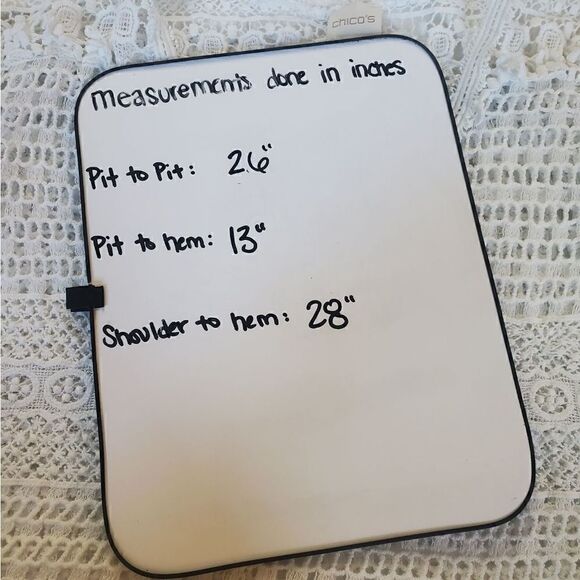 chico's
measurements done in inches
Pit to Pit: 26"
Pit to hem: 13"
Shoulder to hem: 28"